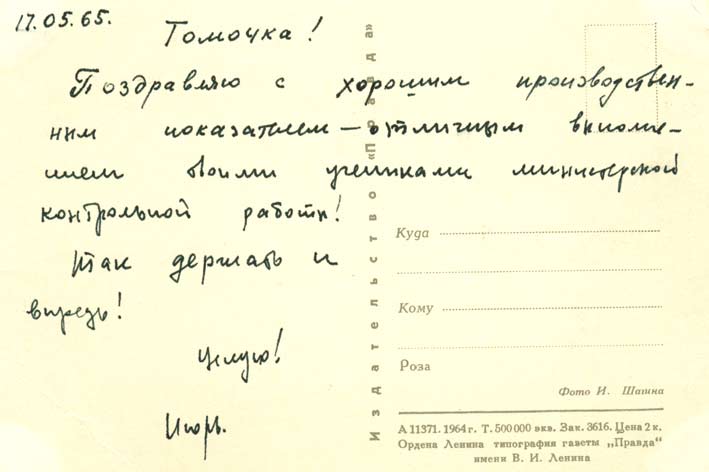 17.05.65.
Томочка!
Поздравляю с хорошим производствен-
ным показателем – отличным выполне-
нием твоими учениками министерской
контрольной работы!
Так держать и
впредь!
Целую!
Игорь.
Издательство «Правда»
Куда
Кому
Роза
Фото И. Шагина
А 11371. 1964 г. Т. 500 000 вкв. Зак. 3616. Цена 2 к.
Ордена Ленина типография газеты „Правда“
имени В. И. Ленина